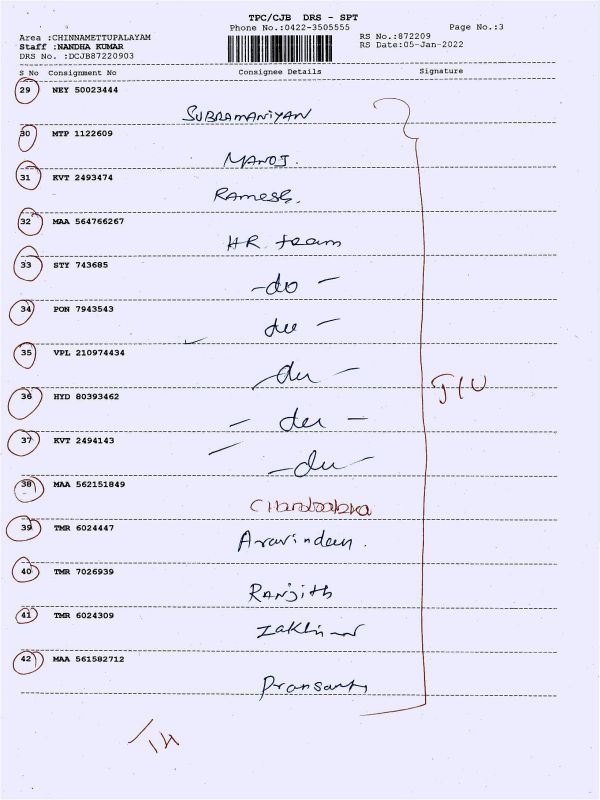 TPC/CJB DRS - SPT
Phone No.:0422-3505555 Page No.:3
Area :CHINNAMETTUPALAYAM RS No.:872209
Staff :NANDHA KUMAR RS Date:05-Jan-2022
DRS No. :DCJB87220903
S No Consignment No Consignee Details Signature
29 NEY 50023444
SUBRAMANIYAN
30 MTP 1122609
MANOJ.
31 KVT 2493474
Ramesh.
32 MAA 564766267
HR team
33 STY 743685
-do-
34 PON 7943543
do -
35 VPL 210974434
do -
36 HYD 80393462
- do -
37 KVT 2494143
-do-
38 MAA 562151849
39 TMR 6024447
Aravindan.
40 TMR 7026939
Ranjith
41 TMR 6024309
42 MAA 561582712